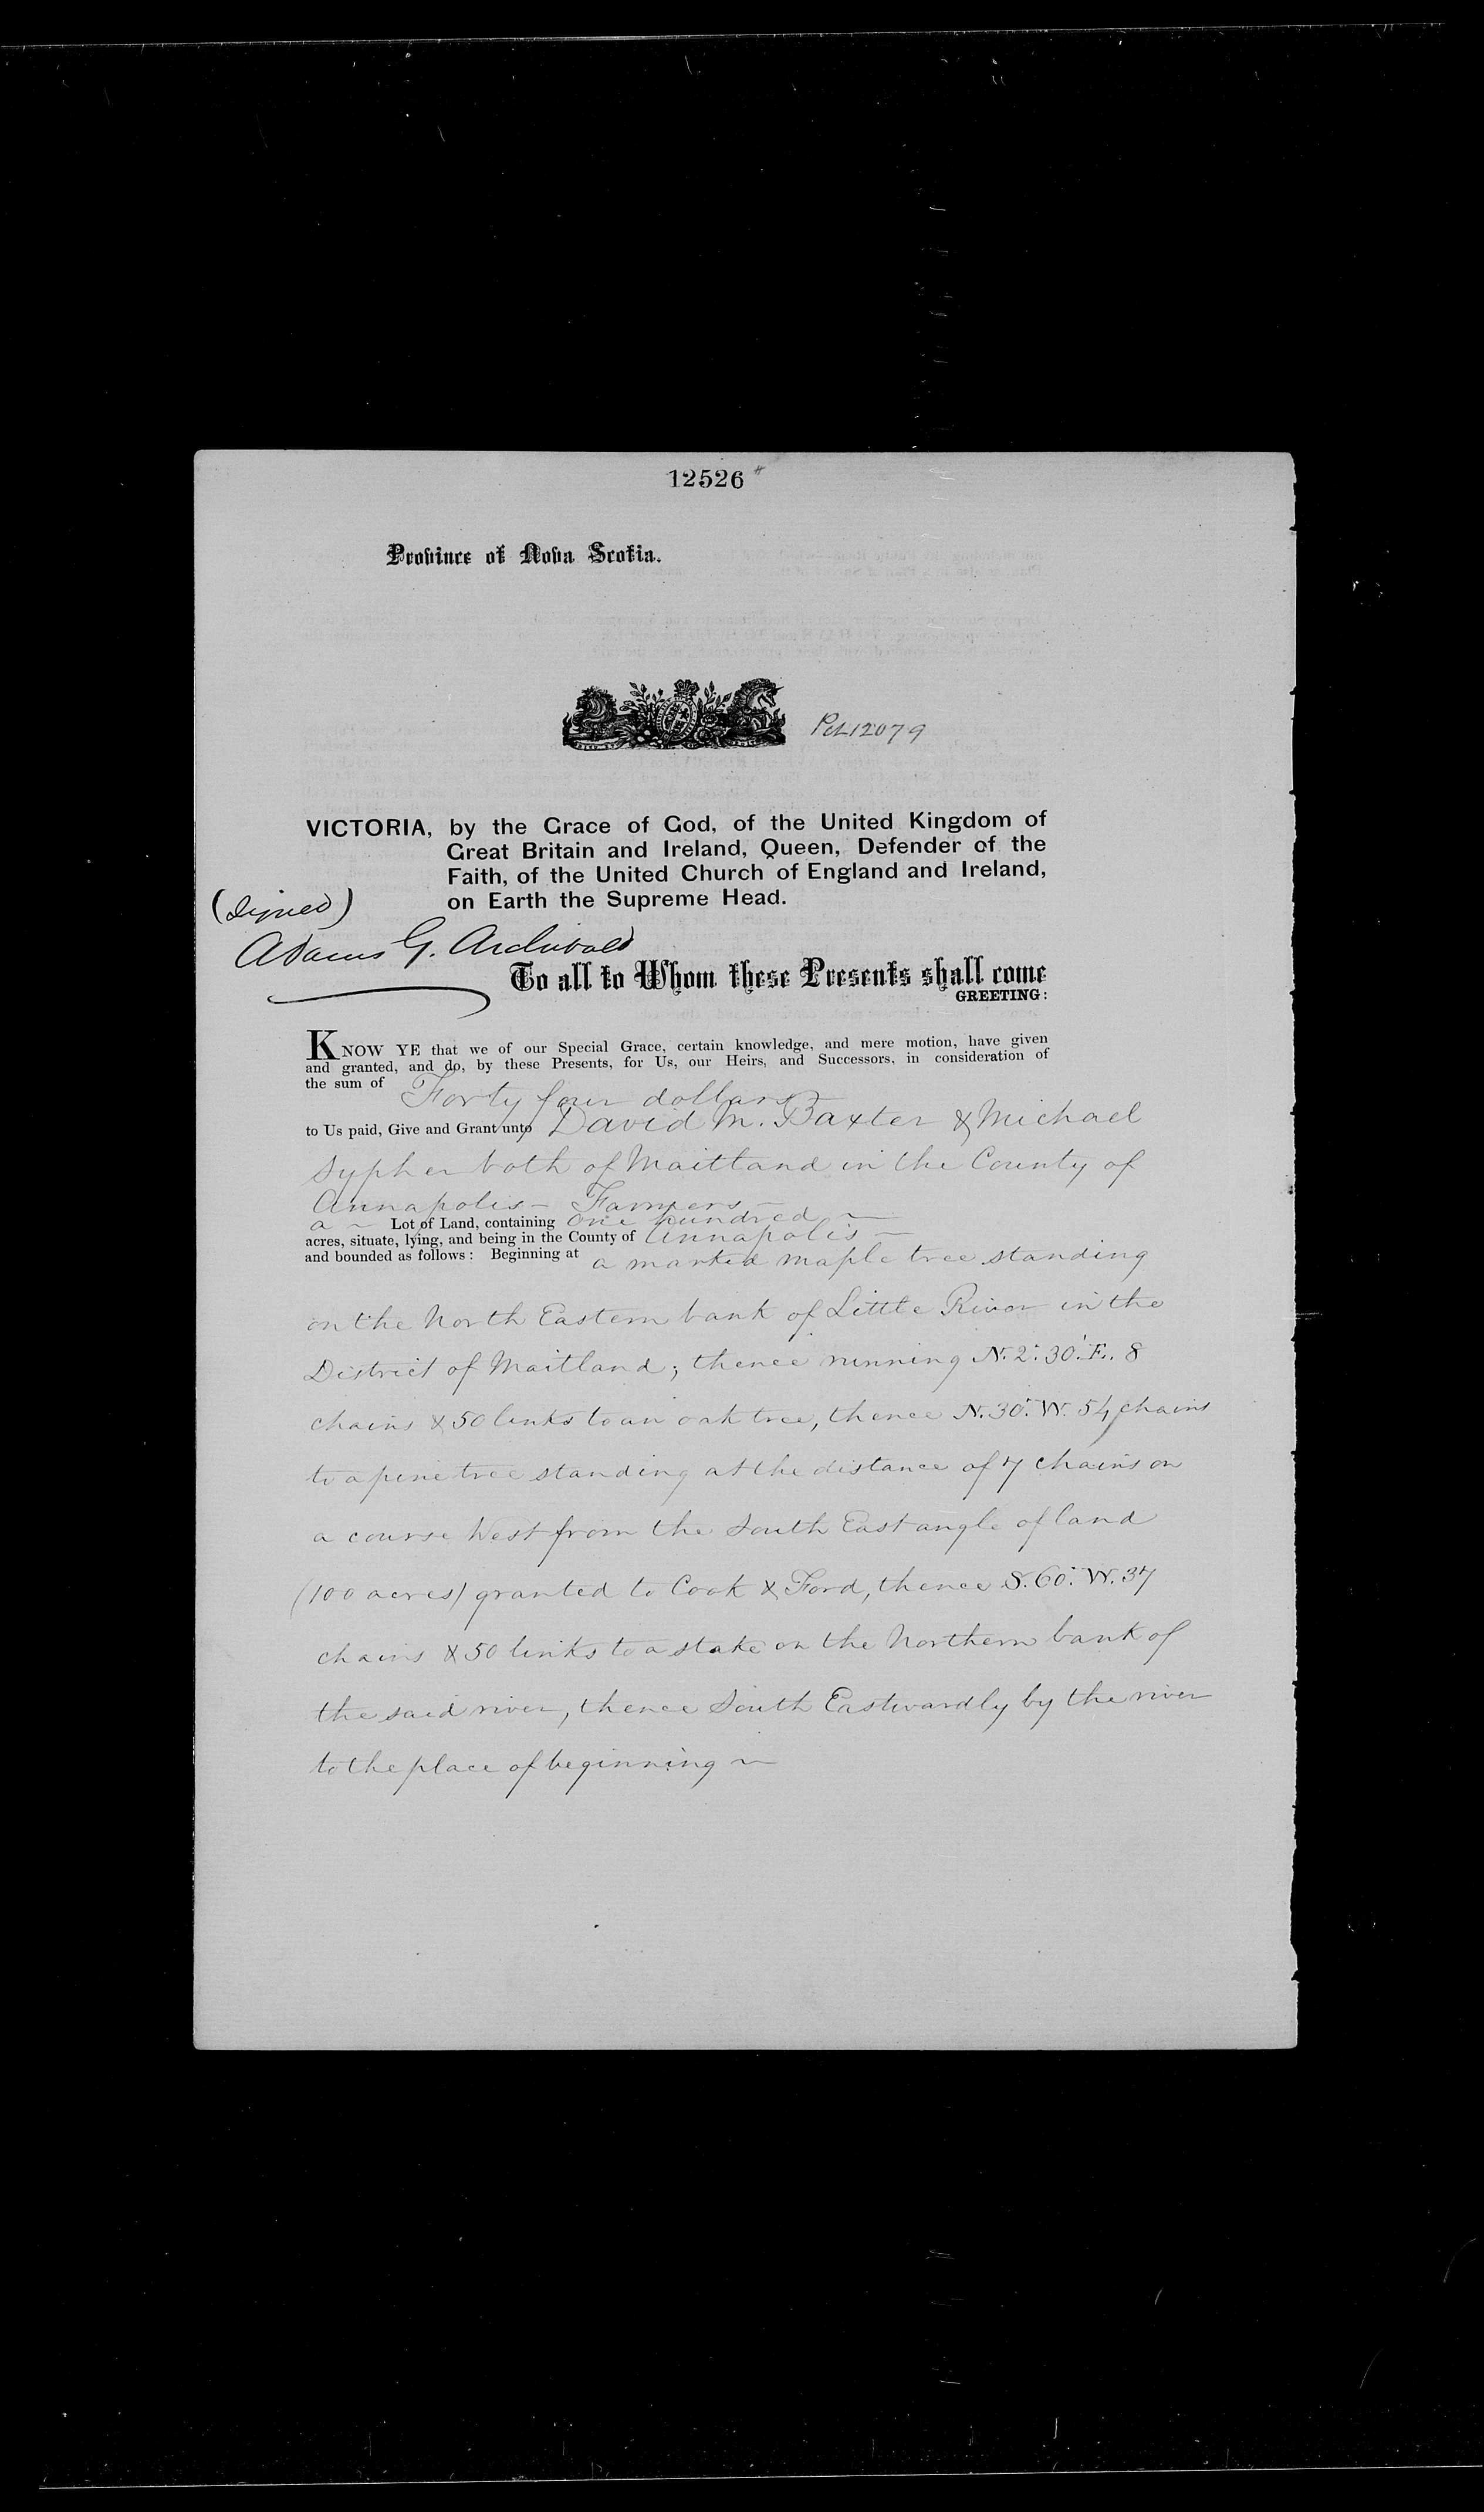 12526
Province of Nova Scotia.
Pet 12079
VICTORIA, by the Grace of God, of the United Kingdom of
Great Britain and Ireland, Queen, Defender of the
Faith, of the United Church of England and Ireland,
on Earth the Supreme Head.
(Signed)
Adams G. Archibald
To all to Whom these Presents shall come
GREETING:
KNOW YE that we of our Special Grace, certain knowledge, and mere motion, have given
and granted, and do, by these Presents, for Us, our Heirs, and Successors, in consideration of
the sum of Forty four dollars
to Us paid, Give and Grant unto David M. Baxter & Michael
Sypher both of Maitland in the County of
Annapolis - Farmers -
a ~ Lot of Land, containing One hundred ~
acres, situate, lying, and being in the County of Annapolis ~
and bounded as follows: Beginning at a marked maple tree standing
on the North Eastern bank of Little River in the
District of Maitland; thence running N. 2°. 30'. E. 8
chains & 50 links to an oak tree, thence N. 30°. W. 54 chains
to a pine tree standing at the distance of 7 chains on
a course West from the South East angle of land
(100 acres) granted to Cook & Ford, thence S. 60°. W. 37
chains & 50 links to a stake on the Northern bank of
the said river, thence South Eastwardly by the river
to the place of beginning ~